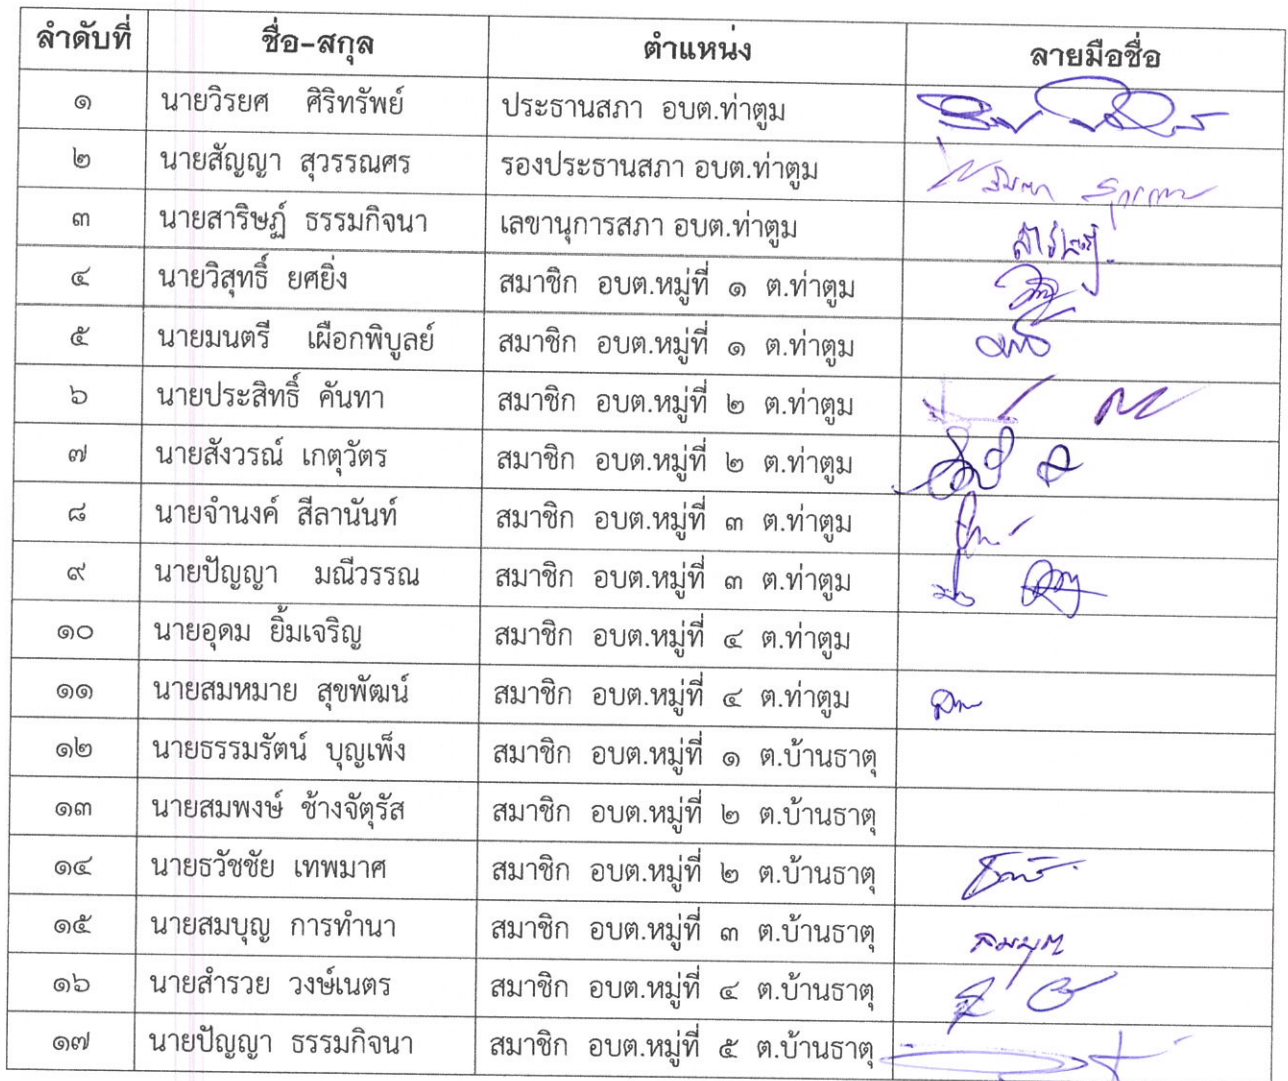 ลำดับที่ ชื่อ-สกุล ตำแหน่ง ลายมือชื่อ
๑ นายวิรยศ ศิริทรัพย์ ประธานสภา อบต.ท่าตูม
๒ นายสัญญา สุวรรณศร รองประธานสภา อบต.ท่าตูม
๓ นายสาริษฏ์ ธรรมกิจนา เลขานุการสภา อบต.ท่าตูม
๔ นายวิสุทธิ์ ยศยิ่ง สมาชิก อบต.หมู่ที่ ๑ ต.ท่าตูม
๕ นายมนตรี เผือกพิบูลย์ สมาชิก อบต.หมู่ที่ ๑ ต.ท่าตูม
๖ นายประสิทธิ์ คันทา สมาชิก อบต.หมู่ที่ ๒ ต.ท่าตูม
๗ นายสังวรณ์ เกตุวัตร สมาชิก อบต.หมู่ที่ ๒ ต.ท่าตูม
๘ นายจำนงค์ สีลานันท์ สมาชิก อบต.หมู่ที่ ๓ ต.ท่าตูม
๙ นายปัญญา มณีวรรณ สมาชิก อบต.หมู่ที่ ๓ ต.ท่าตูม
๑๐ นายอุดม ยิ้มเจริญ สมาชิก อบต.หมู่ที่ ๔ ต.ท่าตูม
๑๑ นายสมหมาย สุขพัฒน์ สมาชิก อบต.หมู่ที่ ๔ ต.ท่าตูม
๑๒ นายธรรมรัตน์ บุญเพ็ง สมาชิก อบต.หมู่ที่ ๑ ต.บ้านธาตุ
๑๓ นายสมพงษ์ ช้างจัตุรัส สมาชิก อบต.หมู่ที่ ๒ ต.บ้านธาตุ
๑๔ นายธวัชชัย เทพมาศ สมาชิก อบต.หมู่ที่ ๒ ต.บ้านธาตุ
๑๕ นายสมบุญ การทำนา สมาชิก อบต.หมู่ที่ ๓ ต.บ้านธาตุ
๑๖ นายสำรวย วงษ์เนตร สมาชิก อบต.หมู่ที่ ๔ ต.บ้านธาตุ
๑๗ นายปัญญา ธรรมกิจนา สมาชิก อบต.หมู่ที่ ๕ ต.บ้านธาตุ